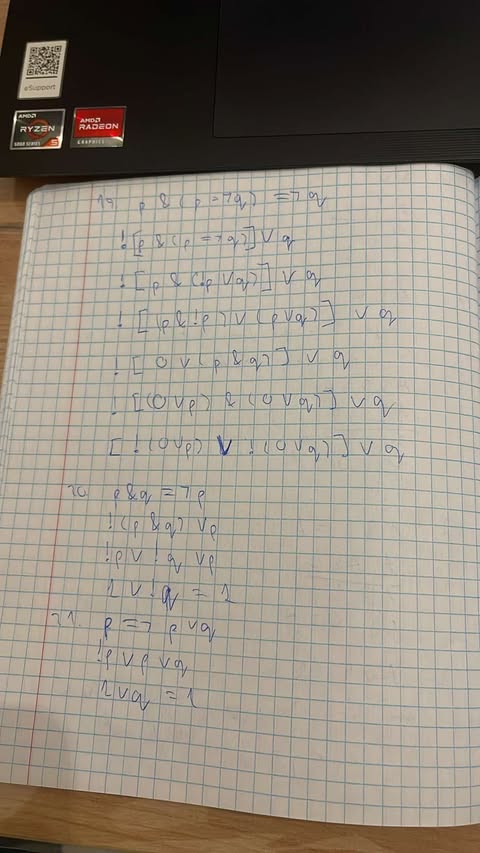 eSupport
AMD
RYZEN
5000 SERIES 5
AMD
RADEON
GRAPHICS
19. p & (p => q) => q
! [p & (p => q)] ∨ q
! [p & (!p ∨ q)] ∨ q
! [(p & !p) ∨ (p ∨ q)] ∨ q
! [0 ∨ (p & q)] ∨ q
! [(0 ∨ p) & (0 ∨ q)] ∨ q
[ !(0 ∨ p) ∨ !(0 ∨ q)] ∨ q
20. p & q => p
!(p & q) ∨ p
!p ∨ !q ∨ p
1 ∨ !q = 1
21. p => p ∨ q
!p ∨ p ∨ q
1 ∨ q = 1